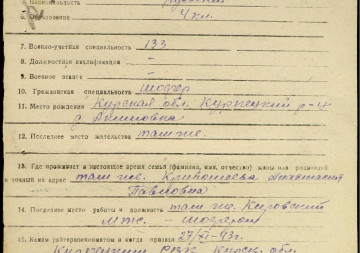 Национальность русский
6. Образование 4 кл.
7. Военно-учетная специальность 133
8. Должностная квалификация -
9. Военное звание -
10. Гражданская специальность шофер
11. Место рождения Курская обл.
12. Последнее место жительства там же.
13. Где проживает в настоящее время семья (фамилия, имя, отчество) жены или родителей
и точный их адрес там же.
Павловна
14. Последнее место работы и должность там же. Кировский
МТС - шофером
15. Каким райвоенкоматом и когда призван 27/VI-43г.
РВК Курск. обл.